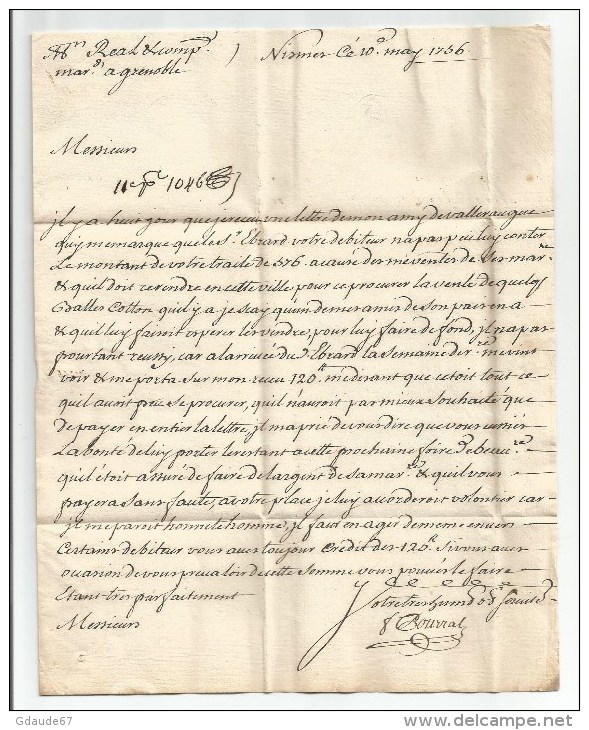 Mrs Real & compe. Nismes Ce 10e may 1756
mards a grenoble
Messieurs
1046
jl y a huit jour que jereceu une lettre demon amy de vallerauque
quy memarque que le sr. Ebrard votre debiteur na pas peu luy conter
Le montant de votre traite de 376. a cause des méventes de ses marne
& quil doit ce rendre en cette ville pour ce procurer la vente de quelqs
Balles Cotton quil y a je scay quun de mes amis de son pais en a
& quil luy fairoit esperer les vendre, pour luy faire de fond, jl na pas
pourtant reussy, car a larrivée du s. Ebrard la semaine dere. me vint
voir & me porta sur mon receu 120lt m'ederant que cetoit tout ce
quil auroit peu se procurer, quil n'auroit pas mieux souhaité que
de payer en entier la lettre, jl ma prié de vous dire que vous eussiés
La bonté de luy porter le restant a cette prochaine foire de beaucre
quil étoit assuré de faire de largent de sa mare & quil vous
payera sans faute, a votre place je luy accorderois volontier car
jl me paroit honnete homme, jl faut en ager de meme envers
Certains debiteur vous aves toujour Crédit des 120lt. Si vous aves
occasion de vous prevaloir de cette Somme vous pouvés le faire
Etant tres parfaitement
Votre tres humb & obt Servite
Messieurs
Gdaude67 www.delcampe.net